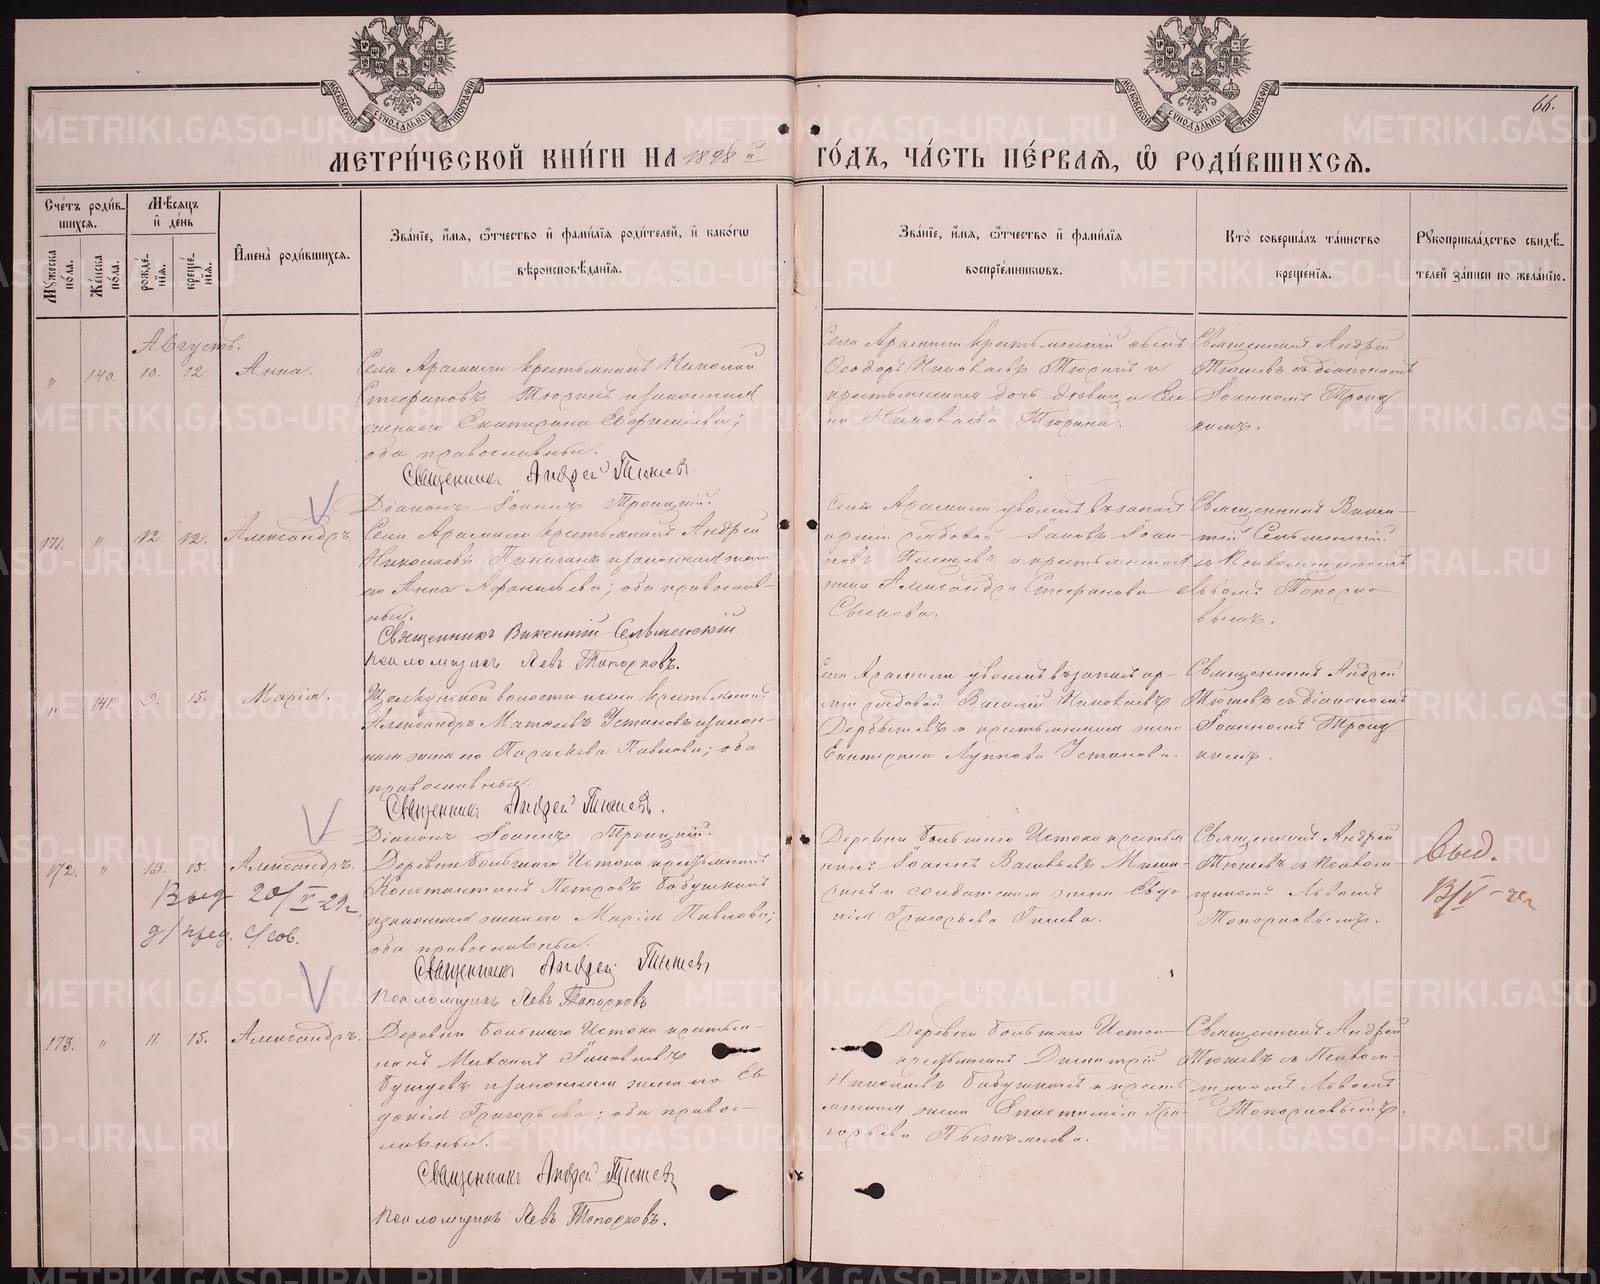 МОСКОВСКОЙ СУНОДАЛЬНОЙ ТИПОГРАФІИ
МОСКОВСКОЙ СУНОДАЛЬНОЙ ТИПОГРАФІИ
66.
МЕТРИ́ЧЕСКОЙ КНИ́ГИ НА 1898 й ГО́ДЪ, ЧА́СТЬ ПЕ́РВАѦ, Ѡ҆ РОДИ́ВШИХСѦ.
Сче́тъ роди́в-
шихсѧ.
Му́жеска по́ла.
Же́нска по́ла.
Мѣ́сѧцъ
и҆ де́нь
рожде́-
нїѧ.
креще́-
нїѧ.
И҆мена̀ роди́вшихсѧ.
Зва́нїе, и҆́мѧ, ѻ҆́тчество и҆ фами́лїѧ роди́телей, и҆ како́гѡ
вѣроисповѣ́данїѧ.
Зва́нїе, и҆́мѧ, ѻ҆́тчество и҆ фами́лїѧ
воспрїе́мниковъ.
Кто̀ соверша́лъ та́инство
креще́нїѧ.
Рꙋкоприкла́дство свидѣ́-
телей за́писи по жела́нїю.
Августъ.
" 140. 10. 12 Анна.
Села Арамили крестьянинъ Николай
Стефановъ Тюринъ и законная
жена его Екатерина;
оба православные.
Священникъ Андрей Тюшевъ
Діаконъ Іоаннъ Троицкій.
Села Арамили крестьянскій сынъ
Ѳеодоръ Николаевъ Тюринъ и
крестьянская дочь девица Еле
на Николаева Тюрина.
Священникъ Андрей
Тюшевъ съ діакономъ
Іоанномъ Троиц
кимъ.
171. " 12. 12. Александръ.
Села Арамили крестьянинъ Андрей
Николаевъ и законная жена
его Анна; оба православ-
ные.
Священникъ Викентій Сельменскій
Псаломщикъ Левъ Топорковъ.
Села Арамили уволен. въ запасъ
арміи рядовой Іаковъ Іоан-
новъ и крестьянская
жена Александра Стефанова
Священникъ Викен-
тій Сельменскій
съ псаломщикомъ
Львомъ Топорко-
вымъ.
" 141. 9. 15. Марія.
волости крестьянинъ
Александръ Матѳеевъ Устиновъ и закон-
ная жена его Параскева Павлова; оба
православные
Священникъ Андрей Тюшевъ.
Діаконъ Іоаннъ Троицкій.
Села Арамили уволен. въ запасъ ар-
міи рядовой Василій
Дербышевъ и крестьянская жена
Екатерина Луппова Устинова.
Священникъ Андрей
Тюшевъ съ діакономъ
Іоанномъ Троиц
кимъ.
172. " 13. 15. Александръ.
Выд 20/V-29г.
д/пред. с/сов.
Деревни Большаго Истока крестьянинъ
Константинъ Петровъ Бабушкинъ
и законная жена его Марія Павлова;
оба православные.
Священникъ Андрей Тюшевъ
Псаломщикъ Левъ Топорковъ
Деревни Большаго Истока крестья
нинъ Іоаннъ Васильевъ
и солдатская жена Евдо
кія Григорьева
Священникъ Андрей
Тюшевъ съ псалом-
щикомъ Львомъ
Топорковымъ.
Выд.
173. " 11. 15. Александръ.
Деревни Большаго Истока крестья-
нинъ Михаилъ Іаковлевъ
и законная жена его Ев
докія Григорьева; оба право-
славные.
Священникъ Андрей Тюшевъ
Псаломщикъ Левъ Топорковъ.
Деревни Большаго Исто-
крестьянинъ Димитрій
Николаевъ Бабушкинъ и кресть
янская жена Анастасія Гри-
горьева
Священникъ Андрей
Тюшевъ съ Псалом-
щикомъ Львомъ
Топорковымъ.
METRIKI.GASO-URAL.RU